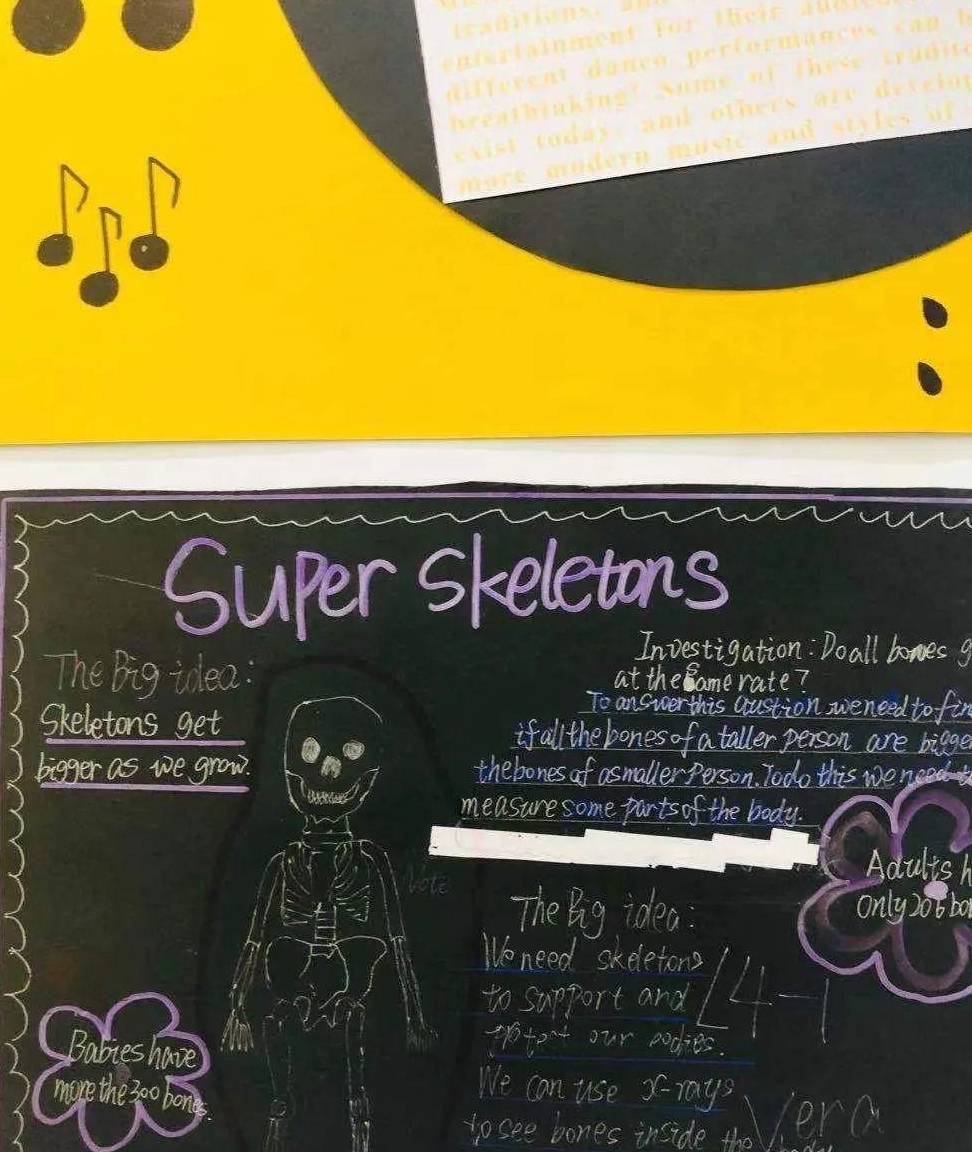 traditions, and
entertainment for their audience
different dance performances can b
breathtaking! Some of these traditi
exist today, and others are develop
more modern music and styles of
Super Skeletons
The Big idea:
Skeletons get
bigger as we grow.
Investigation: Do all bones g
at the same rate?
To answer this qustion we need to fin
if all the bones of a taller Person are bigge
the bones of a smaller Person. To do this we need to
measure some parts of the body.
Adults h
Only 206 bo
Note
The Big idea:
We need skeletons
to support and
our bodies.
We can use x-rays
to see bones inside the body
L4-1
Vera
Babies have
more the 300 bones.